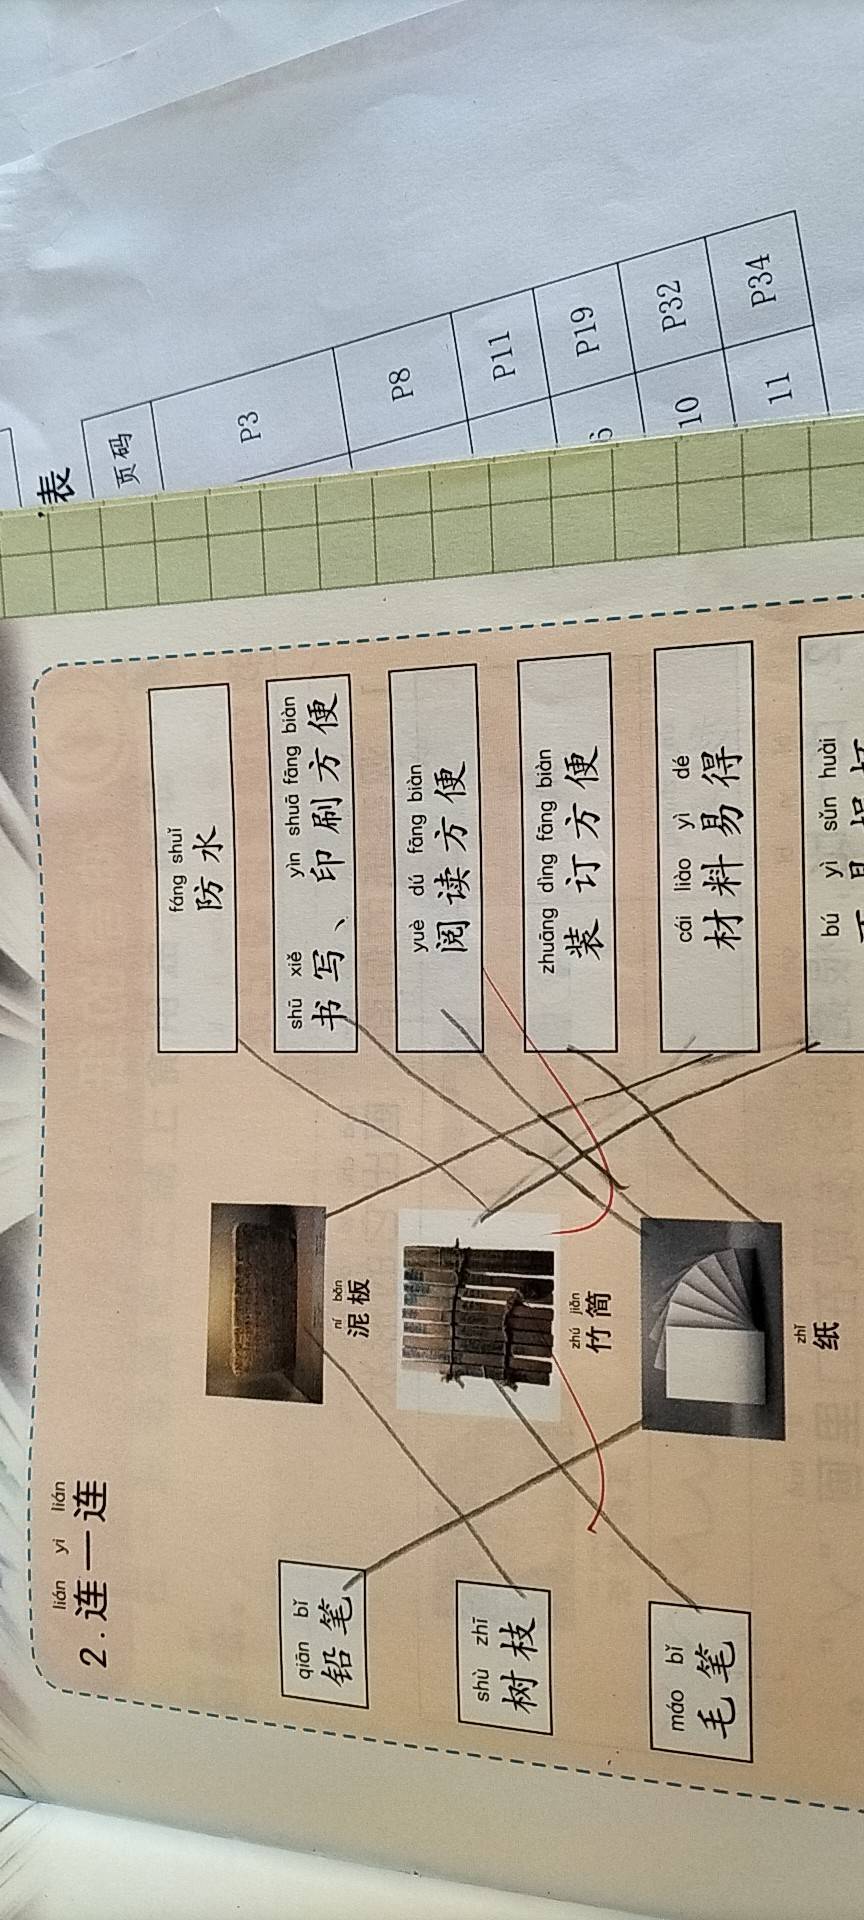 2.连一连
lián yi lián
qiān bǐ
铅笔
shù zhī
树枝
máo bǐ
毛笔
ní bǎn
泥板
zhú jiǎn
竹简
zhǐ
纸
fáng shuǐ
防水
shū xiě yìn shuā fāng biàn
书写、印刷方便
yuè dú fāng biàn
阅读方便
zhuāng dìng fāng biàn
装订方便
cái liào yì dé
材料易得
bú yì sǔn huài
表
页码
P3
P8
P11
P19
10 P32
11 P34